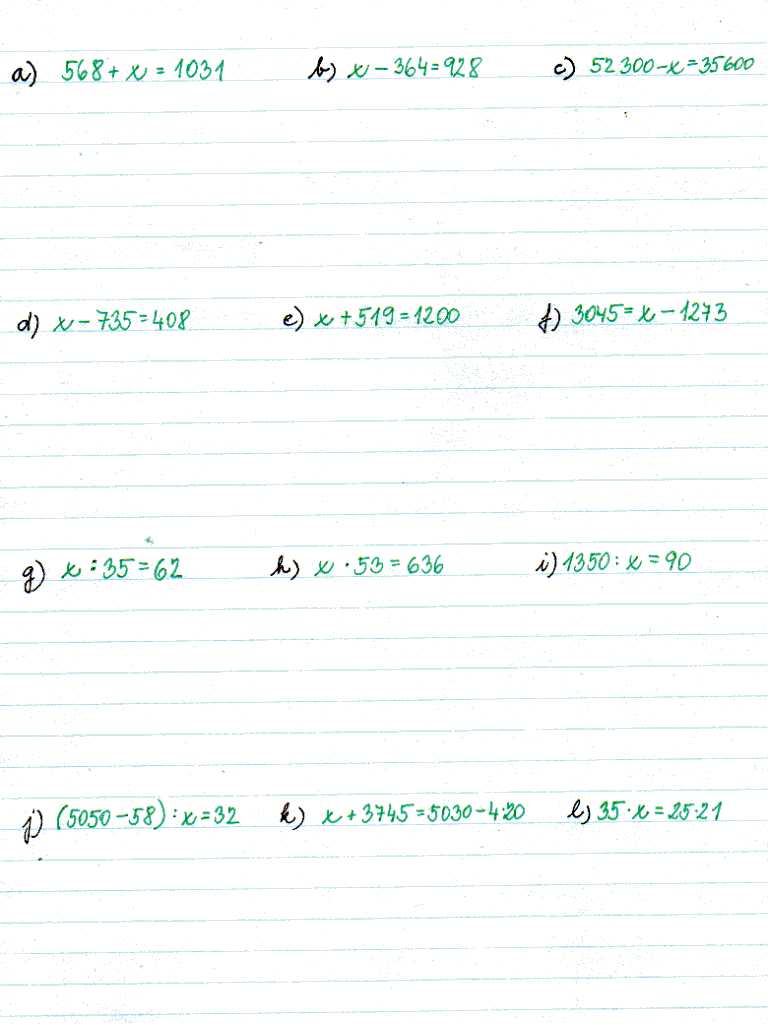 a) 568 + x = 1031 b) x - 364 = 928 c) 52 300 - x = 35600
d) x - 735 = 408 e) x + 519 = 1200 f) 3045 = x - 1273
g) x : 35 = 62 h) x · 53 = 636 i) 1350 : x = 90
j) (5050 - 58) : x = 32 k) x + 3745 = 5030 - 4·20 l) 35 · x = 25·21